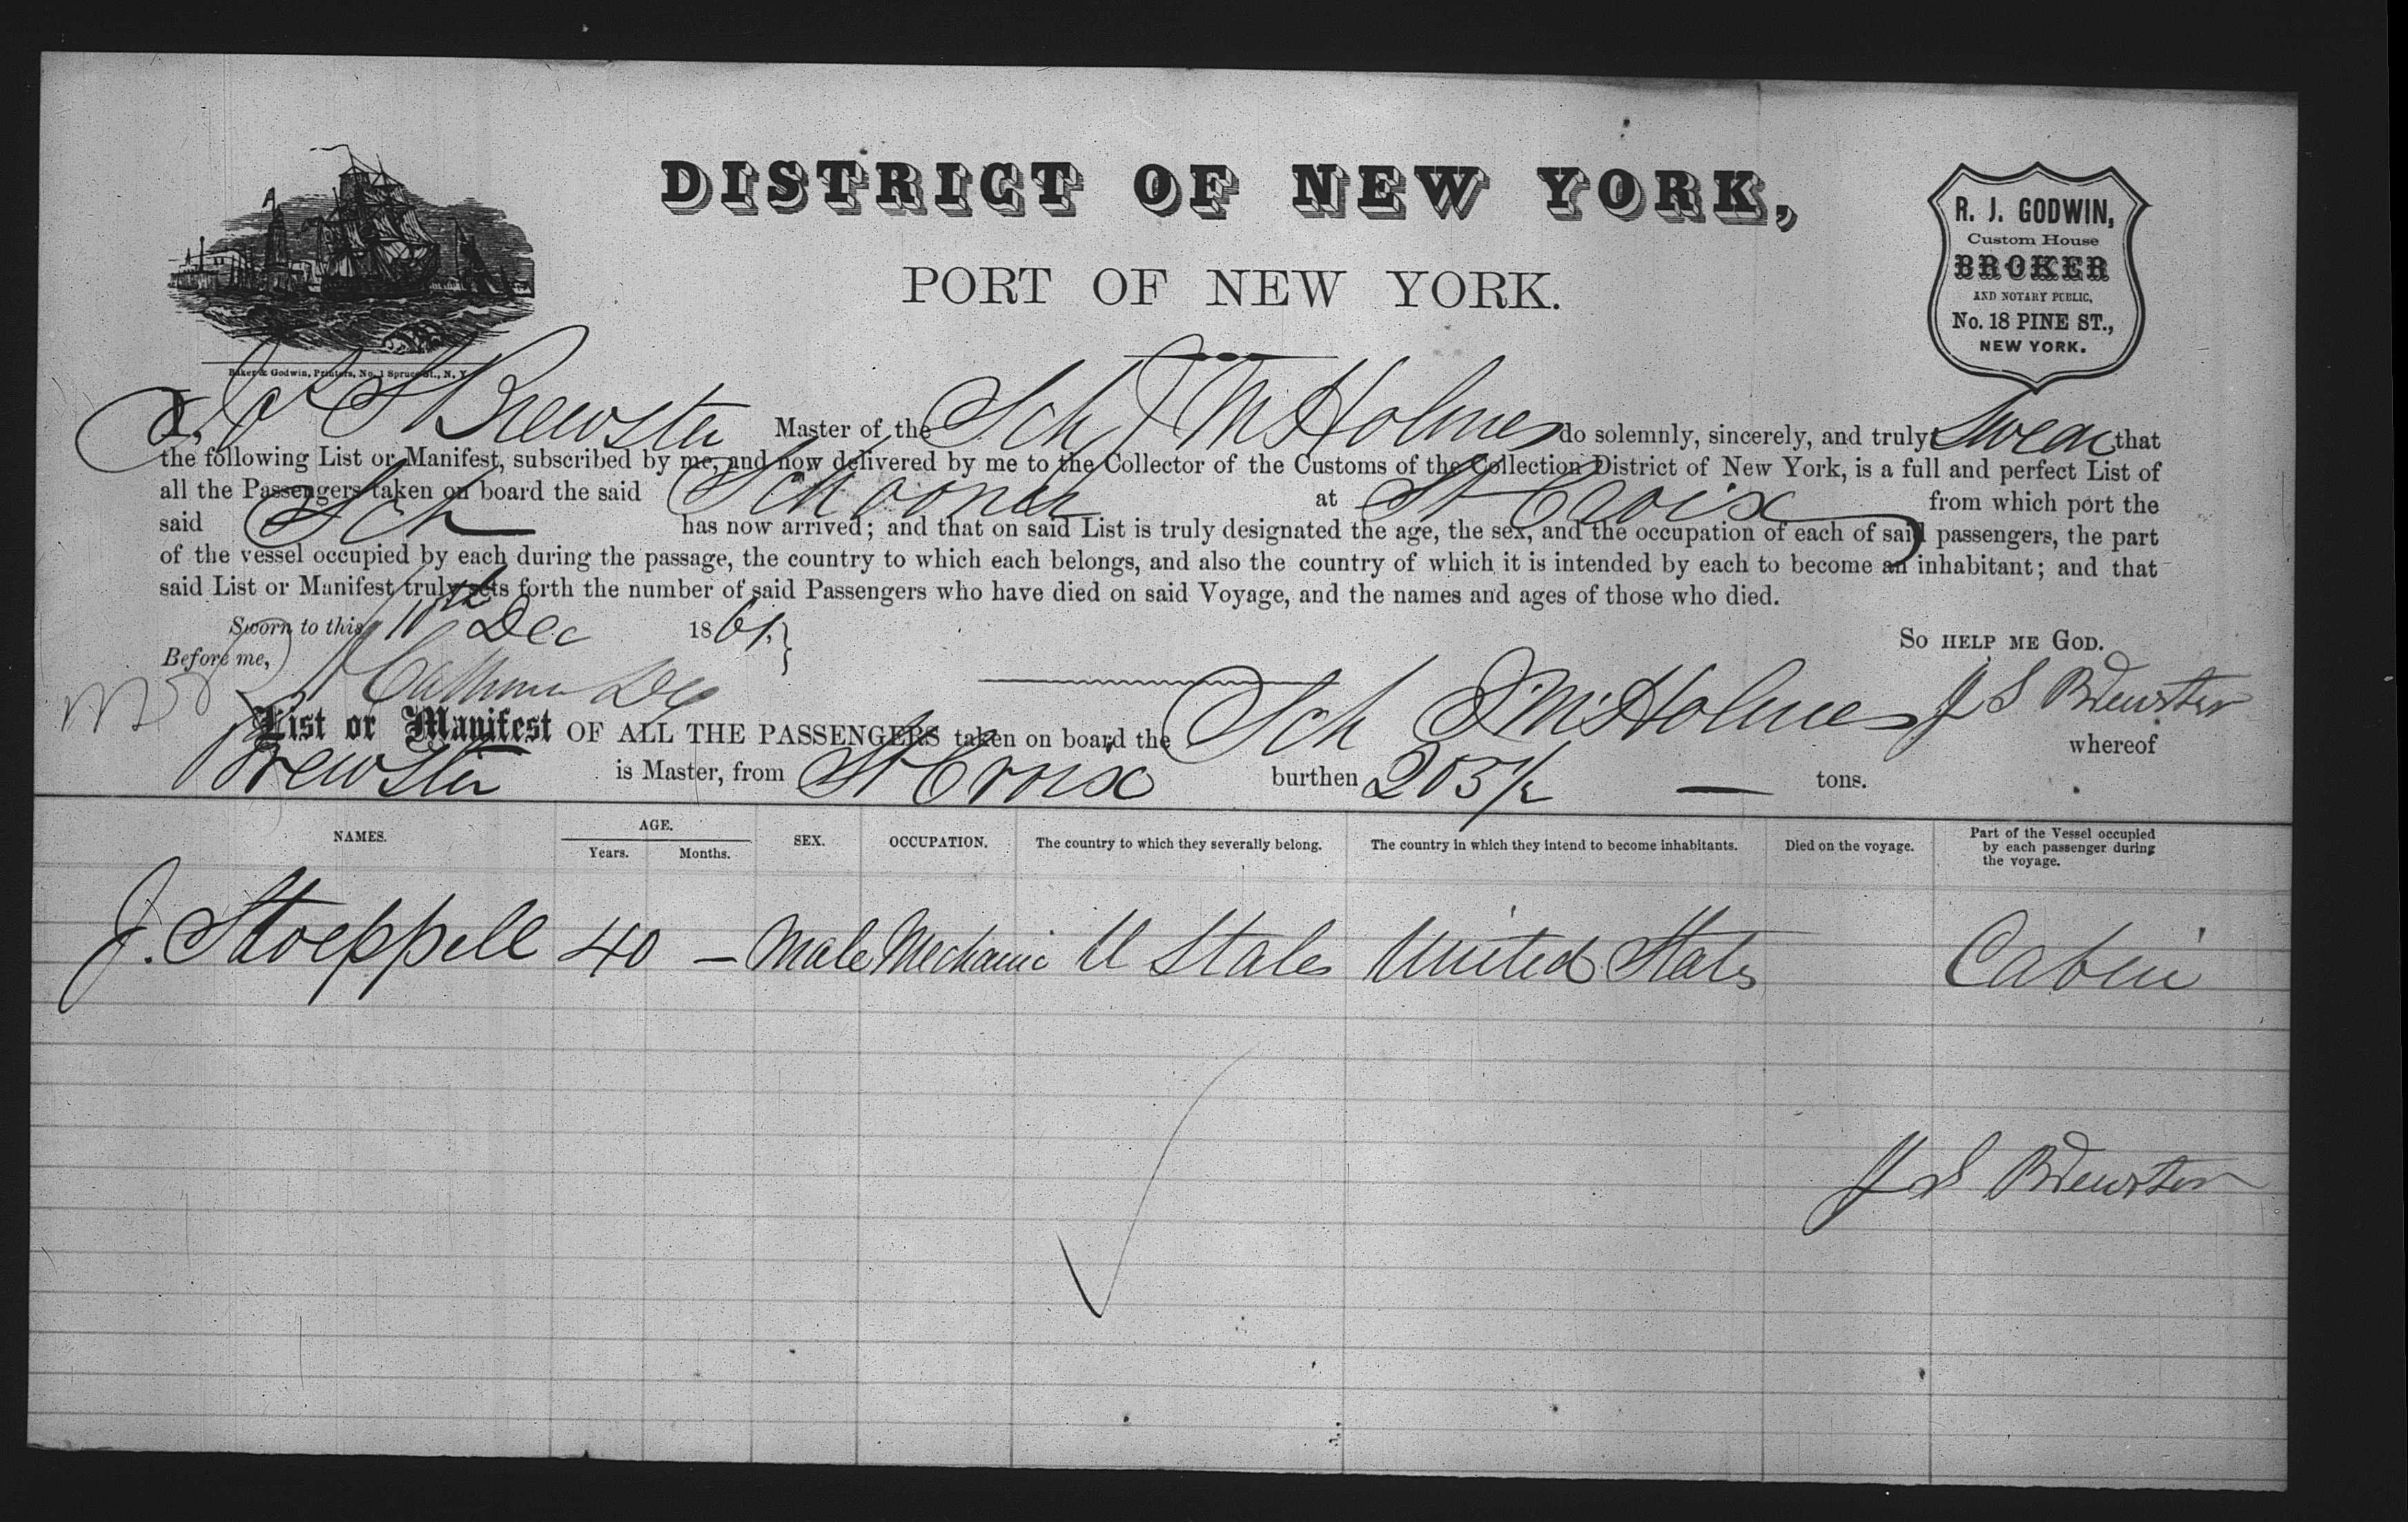 DISTRICT OF NEW YORK,
PORT OF NEW YORK.
R. J. GODWIN,
Custom House
BROKER
AND NOTARY PUBLIC,
No. 18 PINE ST.,
NEW YORK.
Baker & Godwin, Printers, No. 1 Spruce St., N. Y.
I, J S Brewster Master of the Sch J M Holmes do solemnly, sincerely, and truly Swear that
the following List or Manifest, subscribed by me, and now delivered by me to the Collector of the Customs of the Collection District of New York, is a full and perfect List of
all the Passengers taken on board the said Schooner at St Croix from which port the
said Sch has now arrived; and that on said List is truly designated the age, the sex, and the occupation of each of said passengers, the part
of the vessel occupied by each during the passage, the country to which each belongs, and also the country of which it is intended by each to become an inhabitant; and that
said List or Manifest truly sets forth the number of said Passengers who have died on said Voyage, and the names and ages of those who died.
Sworn to this 10th Dec 1861. So HELP ME GOD.
Before me,
J S Brewster
List or Manifest OF ALL THE PASSENGERS taken on board the Sch J. M. Holmes whereof
Brewster is Master, from St Croix burthen 203 1/2 — tons.
NAMES. AGE. Years. Months. SEX. OCCUPATION. The country to which they severally belong. The country in which they intend to become inhabitants. Died on the voyage. Part of the Vessel occupied by each passenger during the voyage.
J. Stoeppell 40 — Male Mechanic U States United States Cabin
J S Brewster